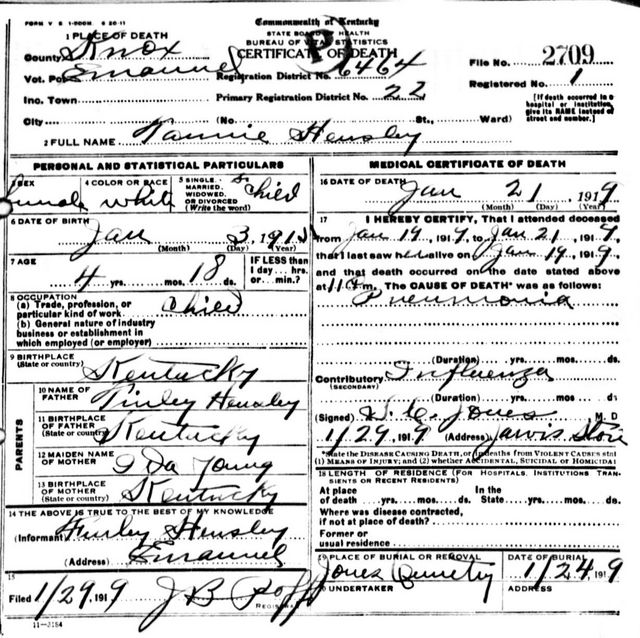 FORM V S 1-200M. 6 20-11
Commonwealth of Kentucky
STATE BOARD OF HEALTH
BUREAU OF VITAL STATISTICS
CERTIFICATE OF DEATH
1 PLACE OF DEATH
County Knox
Vot. Pct Emanuel
Inc. Town
City (No. St., Ward)
Registration District No. 6464
Primary Registration District No. 22
File No. 2709
Registered No. 1
[If death occurred in a hospital or institution, give its NAME instead of street and number.]
2 FULL NAME Hensley
PERSONAL AND STATISTICAL PARTICULARS
3 SEX Female
4 COLOR OR RACE white
5 SINGLE, MARRIED, WIDOWED, OR DIVORCED (Write the word) Child
6 DATE OF BIRTH Jan 3, 191
(Month) (Day) (Year)
7 AGE 4 yrs. mos. 18 ds.
IF LESS than 1 day... hrs. or min.?
8 OCCUPATION
(a) Trade, profession, or particular kind of work Child
(b) General nature of industry business or establishment in which employed (or employer)
9 BIRTHPLACE (State or country) Kentucky
PARENTS
10 NAME OF FATHER Finley Hensley
11 BIRTHPLACE OF FATHER (State or country) Kentucky
12 MAIDEN NAME OF MOTHER Ida Young
13 BIRTHPLACE OF MOTHER (State or country) Kentucky
14 THE ABOVE IS TRUE TO THE BEST OF MY KNOWLEDGE
(Informant) Finley Hensley
(Address) Emanuel
15
Filed 1/29, 1919 J B
REGISTRAR
11-3184
MEDICAL CERTIFICATE OF DEATH
16 DATE OF DEATH Jan 21, 1919
(Month) (Day) (Year)
17 I HEREBY CERTIFY, That I attended deceased
from Jan 19, 1919, to Jan 21, 1919,
that I last saw her alive on Jan 19, 1919,
and that death occurred on the date stated above
at m. The CAUSE OF DEATH* was as follows:
Pneumonia
(Duration) yrs. mos. ds.
Contributory (SECONDARY) Influenza
(Duration) yrs. mos. ds
(Signed) Jones, M. D
1/29, 1919 (Address) Jarvis Store
*State the DISEASE CAUSING DEATH, or in deaths from VIOLENT CAUSES stat
(1) MEANS OF INJURY; and (2) whether ACCIDENTAL, SUICIDAL or HOMICIDAL
18 LENGTH OF RESIDENCE (FOR HOSPITALS, INSTITUTIONS TRANSIENTS OR RECENT RESIDENTS)
At place of death yrs. mos. ds. In the State yrs. mos. ds
Where was disease contracted, if not at place of death?
Former or usual residence
19 PLACE OF BURIAL OR REMOVAL Jones Cemetery
DATE OF BURIAL 1/24, 1919
20 UNDERTAKER
ADDRESS